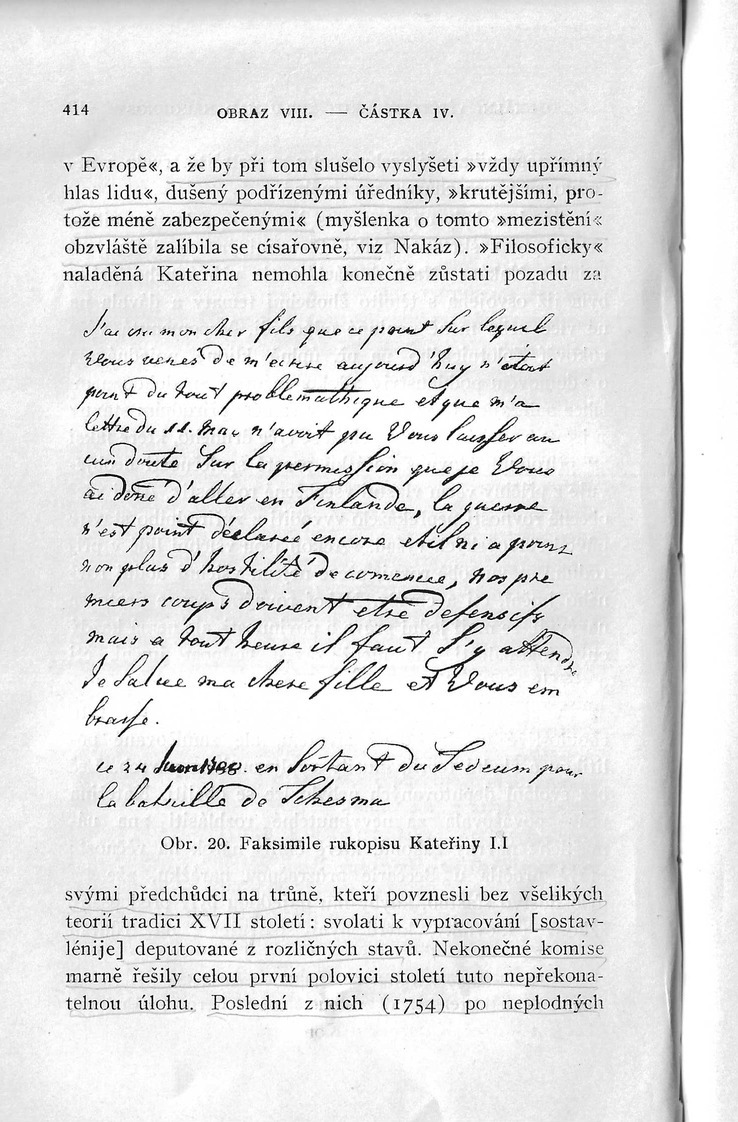 414
OBRAZ VIII. — ČÁSTKA IV.
v Evropě«, a že by při tom slušelo vyslyšeti »vždy upřímný
hlas lidu«, dušený podřízenými úředníky, »krutějšími, pro-
tože méně zabezpečenými« (myšlenka o tomto »mezistění«
obzvláště zalíbila se císařovně, viz Nakáz). »Filosoficky«
naladěná Kateřina nemohla konečně zůstati pozadu za
J'ai cru mon cher fils que ce point sur lequel
Vous venés de m'ecrire aujourd'huy n'étoit
point du tout problemathique et que m'a
lettre du 11. May n'avoit pu Vous laisser au
cun doute sur la permission que je Vous
ai doné d'aller en Finlande, la guerre
n'est point déclareé encore et il ni a point
non plus d'hostilité de comencée, nos pre
miers coups doivent etre defensifs
mais a tout heure il faut s'y attendre
Je Salue ma chere fille et Vous em
brasse.
ce 24 1788. en sortant du Tedeum pour
la bataille de Tchesma
Obr. 20. Faksimile rukopisu Kateřiny I.I
svými předchůdci na trůně, kteří povznesli bez všelikých
teorií tradici XVII století: svolati k vypracování [sostav-
lénije] deputované z rozličných stavů. Nekonečné komise
marně řešily celou první polovici století tuto nepřekona-
telnou úlohu. Poslední z nich (1754) po neplodných